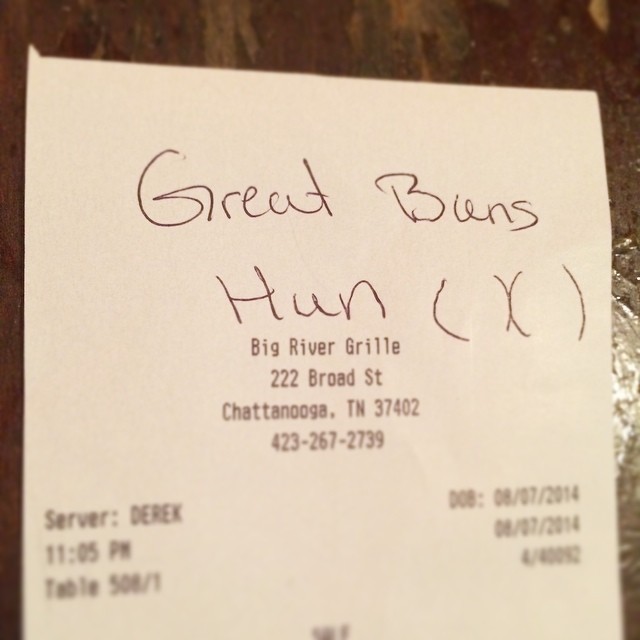 Great Buns
Hun ( X )
Big River Grille
222 Broad St
Chattanooga, TN 37402
423-267-2739
Server: DEREK
DOB: 08/07/2014
11:05 PM
08/07/2014
Table 508/1
4/40092
SALE